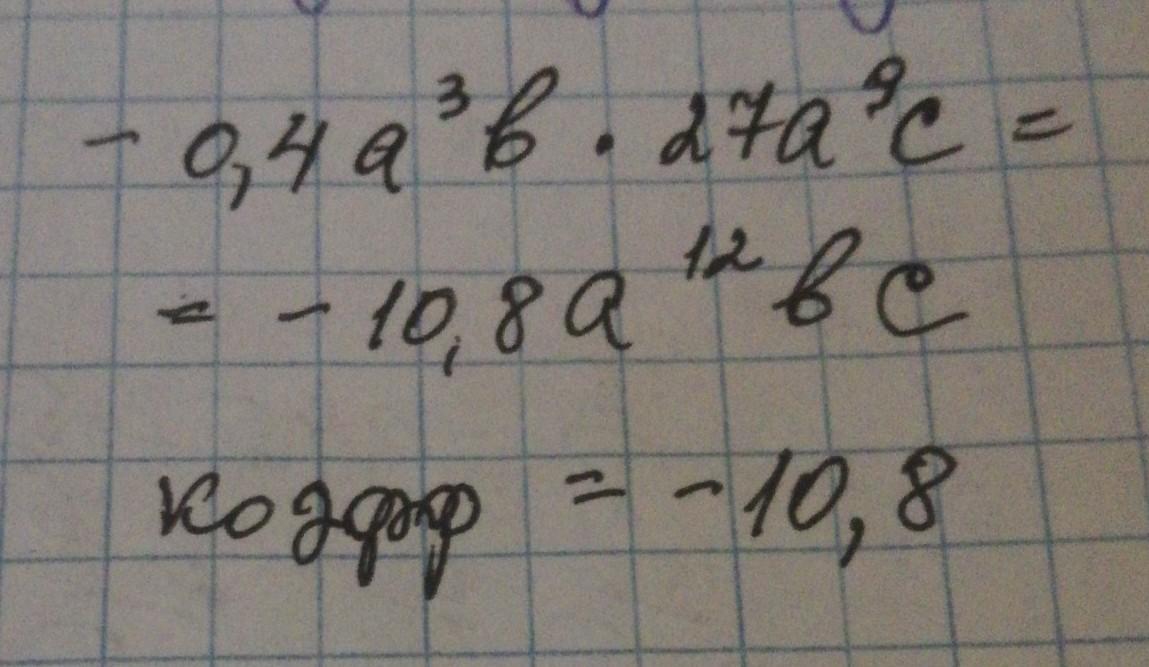 - 0,4a³b · 27a⁹c =
= - 10,8a¹²bc
коэфф = -10,8